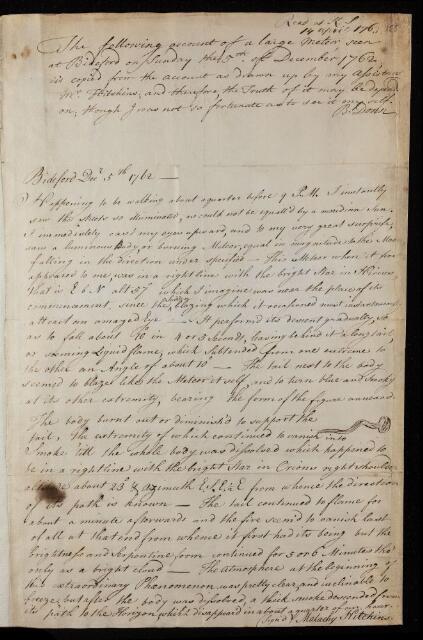 Read at R. S.
14 April 176
The following account of a large Meteor seen
at Bideford on Sunday the 5th of December 1762,
is copied from the account as drawn up by my Assistant
Mr Hitchins, and therefore the Truth of it may be depended
on, though I was not so fortunate as to see it my self.
B: Donn
Bideford Decr 5th 1762 —
Happening to be walking about a quarter before 9 P.M. I instantly
saw the streets so illuminated, as could not be equall'd by a meridian Sun.
I immediately cast my eyes upward, and to my very great surprise,
saw a luminous Body, or burning Meteor, equal in magnitude to the Moon
falling in the direction under specified — This Meteor when it first
appeared to me was in a right line with the bright Star in
that is E b N alt 57 which I imagine was near the place of its
commencement, since the blazing which it occasioned must instantaneously
attract an amazed eye — It perform'd its descent gradually, so
as to fall about 40 in 4 or 5 seconds, leaving behind it a long tail,
or seeming Liquid flame, which subtended from one extreme to
the other an Angle of about 10 — The tail next to the body
seemed to blaze like the Meteor it self, and to turn blue and smoky
at its other extremity, bearing the form of the figure annexed.
The body burnt out or diminish'd to support the
tail, the extremity of which continued to vanish into
smoke till the whole body was dissolved which happened to
be in a right line with the bright Star in Orion's right shoulder
altitude about 23 & azimuth from whence the direction
of its path is known — The tail continued to flame for
about a minute afterwards and the fire seem'd to vanish last
of all at that end from whence it first had its being but the
brightness and Serpentine form continued for 5 or 6 Minutes tho'
only as a bright cloud — The atmosphere at the beginning of
this extraordinary Phenomenon was pretty clear, and inclinable to
freeze, but after the body was dissolved, a thick smoke descended from
its path to the Horizon which disappeared in about a quarter of an hour.
Sign'd Malachy Hitchins.